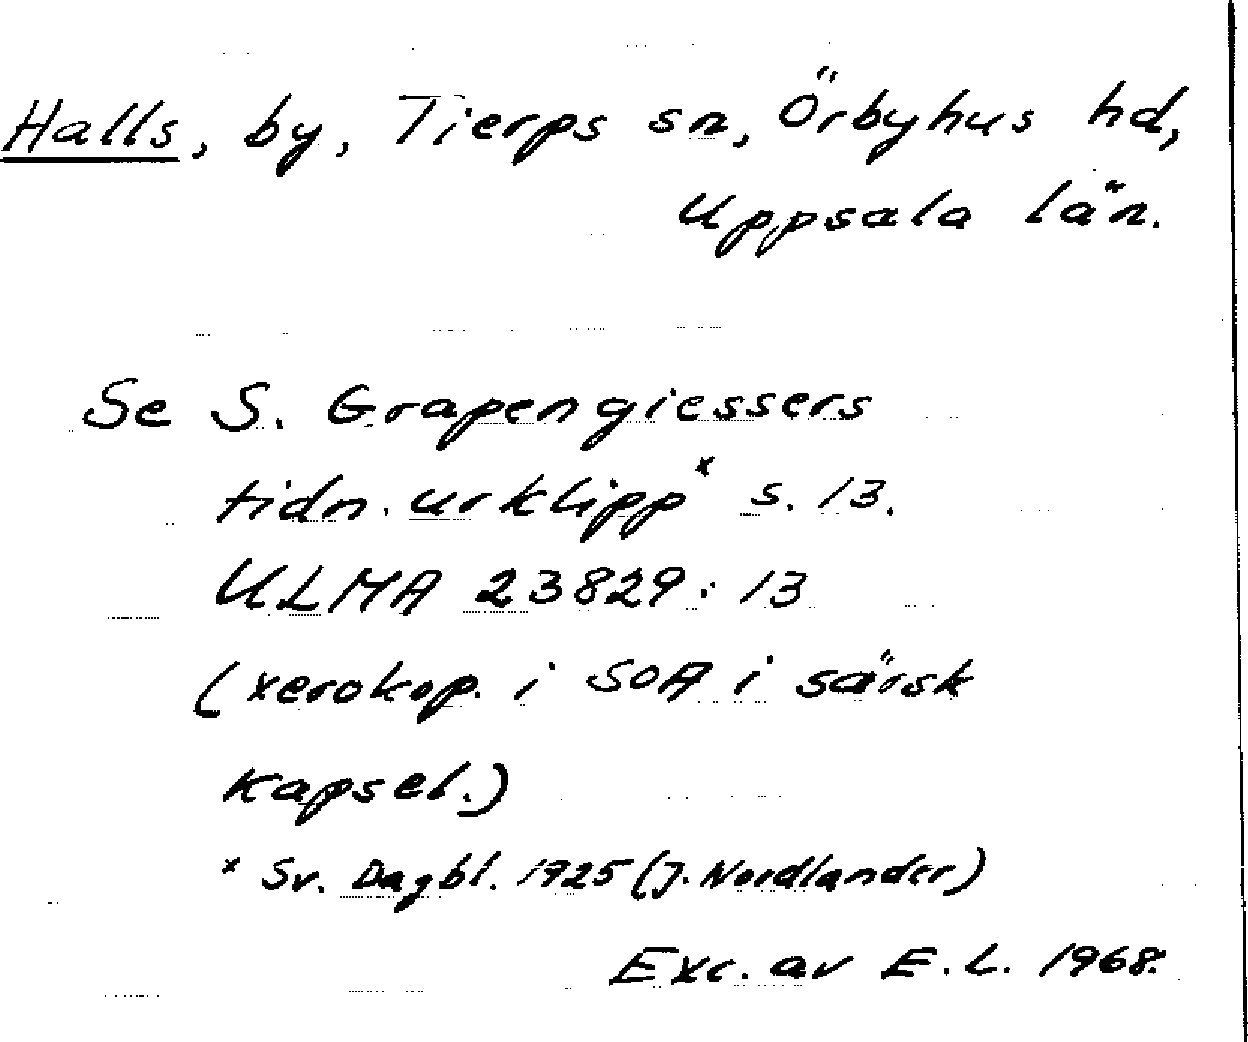 Halls, by, Tierps sn, Örbyhus hd,
Uppsala län.
Se S. Grapengiessers
tidn. urklipp x s. 13.
ULMA 23829:13
(xerokop. i SOA i särsk
kapsel.)
x Sv. Dagbl. 1925 (J. Nordlander)
Exc. av E.L. 1968.